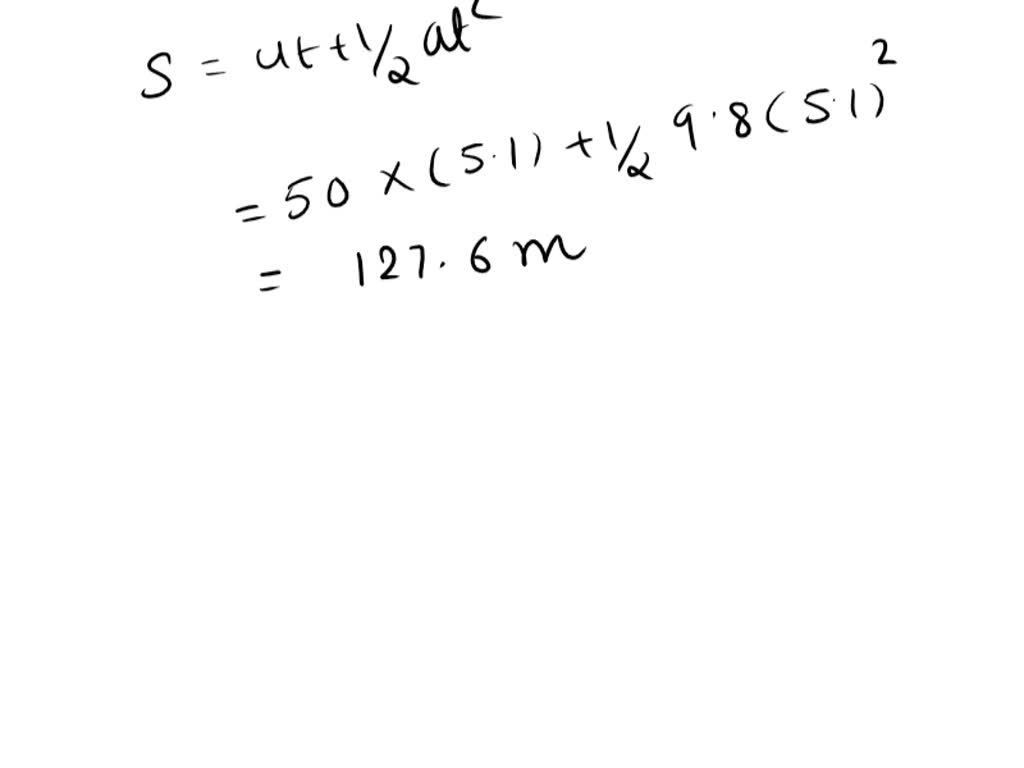 S = ut + 1/2 at²
= 50 × (5.1) + 1/2 9.8 (5.1)²
= 127.6 m